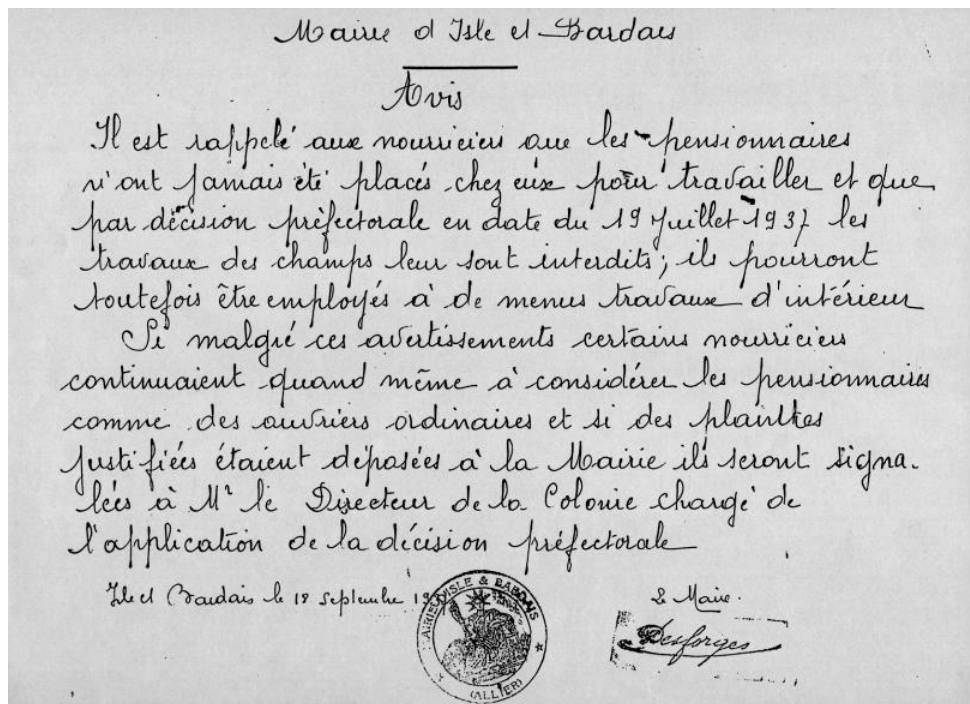 Mairie d'Isle et Bardais
Avis
Il est rappelé aux nourriciers que les pensionnaires
n'ont jamais été placés chez eux pour travailler et que
par décision préfectorale en date du 19 Juillet 1937 les
travaux des champs leur sont interdits; ils pourront
toutefois être employés à de menus travaux d'intérieur
Si malgré ces avertissements certains nourriciers
continuaient quand même à considérer les pensionnaires
comme des ouvriers ordinaires et si des plaintes
justifiées étaient déposées à la Mairie ils seront signa-
lées à Mr le Directeur de la Colonie chargé de
l'application de la décision préfectorale
Isle et Bardais le 18 Septembre
MAIRIE D'ISLE & BARDAIS
(ALLIER)
Maire.
Desforges